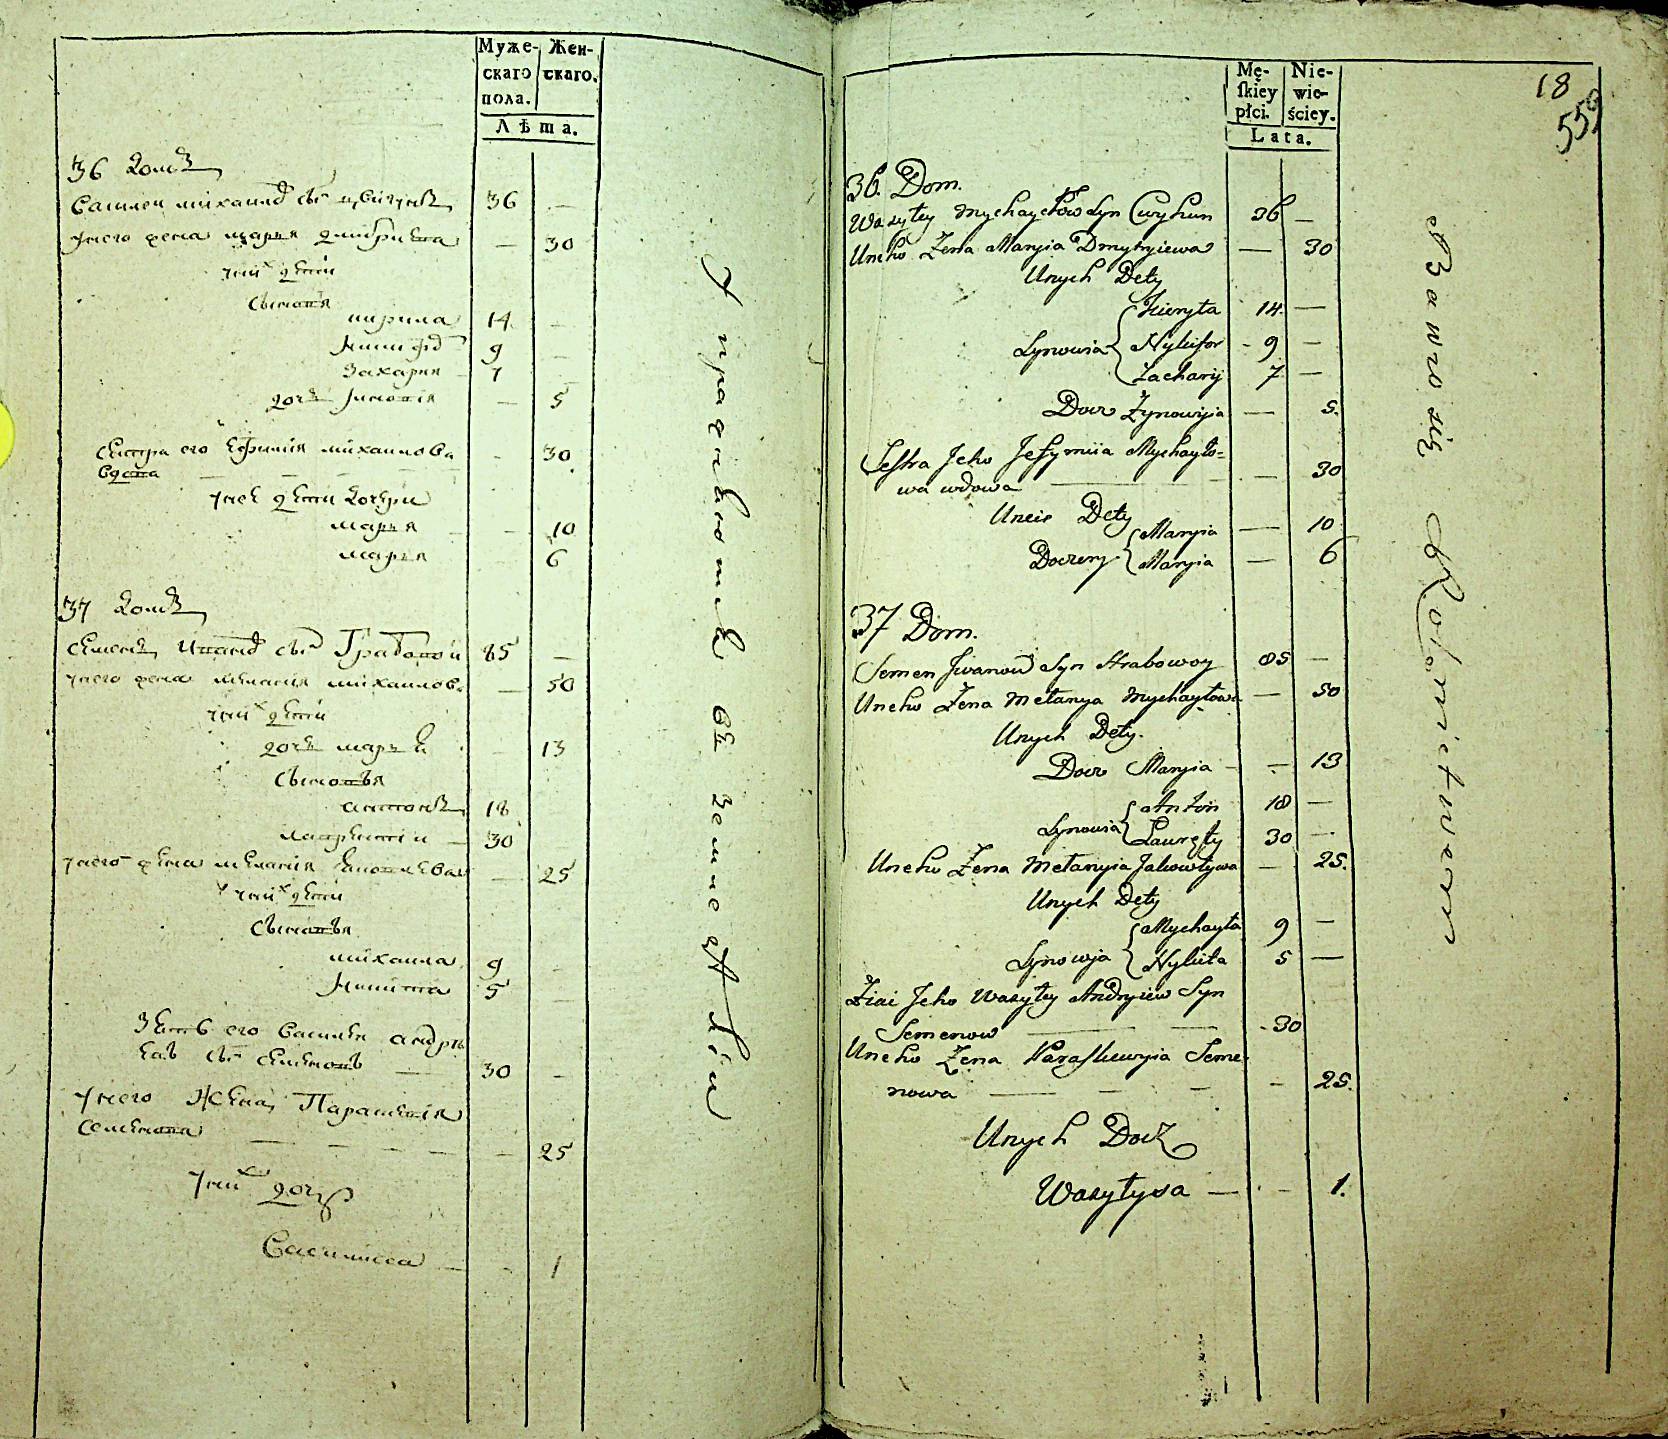 Муже-
скаго
пола.
Жен-
скаго.
Лѣта.
36 домъ
Василеи михаилов снъ цвигунъ 36 —
унего жена марья дмитриева — 30
уних дети
сыновя
кирила 14 —
никифор 9 —
захария 7 —
дочь зиновия — 5
сестра его ефимия михаилова
вдова — 30
унее дети дочери
марья — 10
марья — 6
37 домъ
семенъ иванов снъ Грабовои 85 —
унего жена мелания михаилова — 50
уних дети
дочь марья — 13
сыновья
антонъ 18
лаврентии 30
унего жена мелания — 25
уних дети
сыновья
михаила 9 —
никита 5 —
зять его василеи андре
евъ снъ семеновъ 30 —
унего жена Параскевия
семенова — 25
уних дочь
Василиса — 1
упражняютца въ земледѣлии
Mę-
skiey
płci.
Nie-
wie-
ściey.
Lata.
18
559
36. Dom.
Wasyley Mychayłow Syn Cwyhun 36 —
Uneho Żena Maryia Dmytryiewa — 30
Unych Dety
Synowia Kieryła 14 —
Nykifor 9 —
Zachary 7 —
Docz Zynowyia — 5.
Sestra Jeho Jefymiia Mychayło-
wa wdowa — 30
Uneie Dety
Doczery Maryia — 10
Maryia — 6
37 Dom.
Semen Iwanow Syn Hrabowoy 85 —
Uneho Żena Mełanya Mychayłowa — 50
Unych Dety.
Docz Maryia — 13
Synowia Anton 18 —
Lawręty 30 —
Uneho Żena Mełanyia Jakowlywa — 25.
Unych Dety
Synowja Mychayła 9 —
Nykita 5 —
Ziat Jeho Wasyley Andryiew Syn
Semenow 30
Uneho Żena Paraskiewyia Seme-
nowa — 25.
Unych Docz
Wasylysa — 1.
Bawro się Rolnictwem